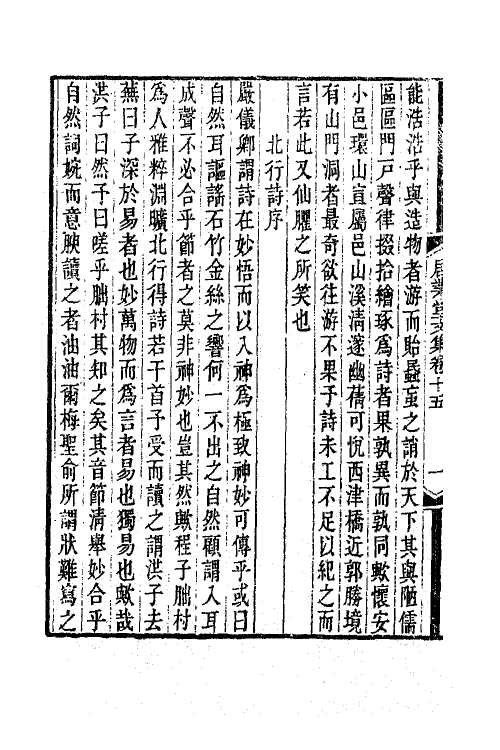 能浩浩乎與造物者游而貽蟁䖟之誚於天下其與陋儒
區區門戸聲律掇拾繪琢爲詩者果孰異而孰同歟懷安
小邑環山宣屬邑山溪清邃幽蒨可悅西津橋近郭勝境
有山門洞者最奇欲往游不果予詩未工不足以紀之而
言若此又仙臞之所笑也
北行詩序
嚴儀卿謂詩在妙悟而以入神爲極致神妙可傳乎或曰
自然耳謳謠石竹金絲之響何一不出之自然顧謂入耳
成聲不必合乎節者之莫非神妙也豈其然歟程子朏村
爲人雅粹淵曠北行得詩若干首予受而讀之謂洪子去
蕪曰子深於易者也妙萬物而爲言者易也獨易也歟哉
洪子曰然予曰嗟乎朏村其知之矣其音節清舉妙合乎
自然詞婉而意腴讀之者油油爾梅聖俞所謂狀難寫之
居業堂文集卷十五
一